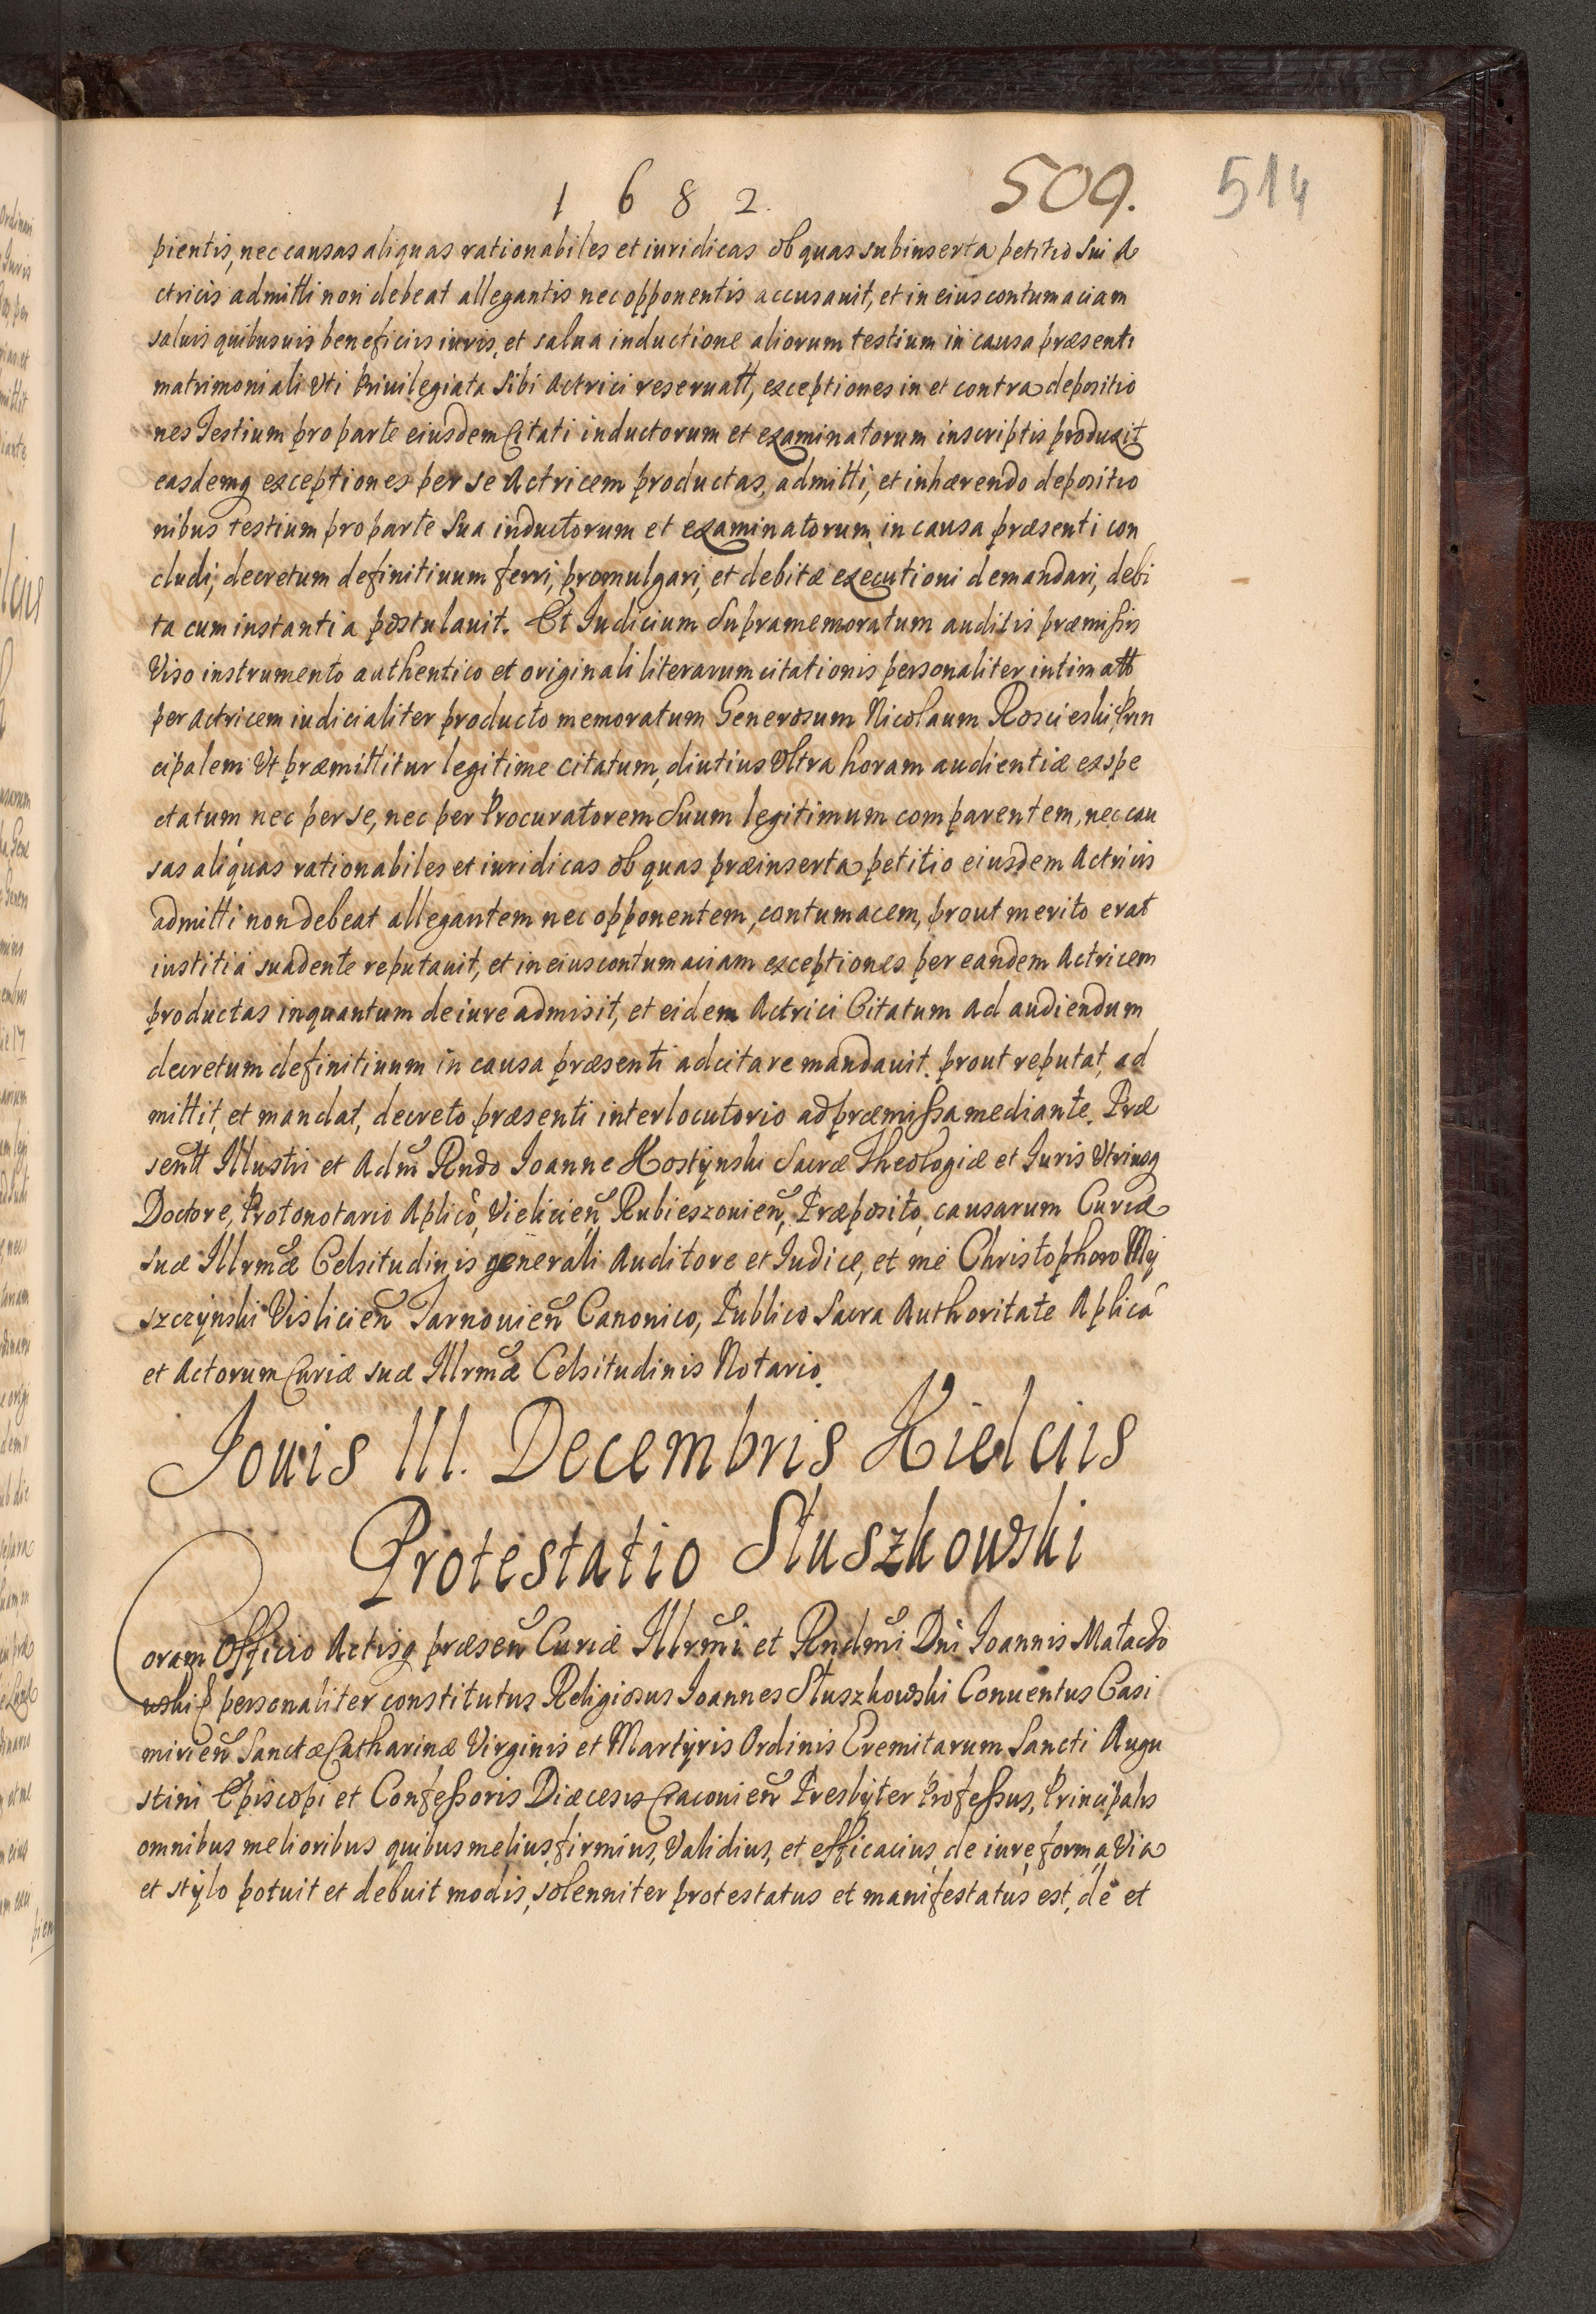 1 6 8 2.
509.
514
pientis, nec causas aliquas rationabiles et iuridicas ob quas subinserta petitio sui A
ctricis admitti non debeat allegantis nec opponentis accusauit, et in eius contumaciam
saluis quibusuis beneficiis iuris, et salua inductione aliorum testium in causa præsenti
matrimoniali vti Priuilegiata sibi Actrici reseruatt, exceptiones in et contra depositio
nes Testium pro parte eiusdem Citati inductorum et examinatorum inscriptis produxit
easdemq exceptiones per se Actricem productas, admitti, et inhærendo depositio
nibus Testium pro parte sua inductorum et examinatorum in causa præsenti con
cludi, decretum definitiuum ferri, promulgari, et debitæ executioni demandari, debi
ta cum instantia postulauit. Et Iudicium supramemoratum auditis præmissis
Viso instrumento authentico et originali literarum citationis personaliter intimatt
per Actricem iudicialiter producto memoratum Generosum Nicolaum Roscieski, Prin
cipalem Vt præmittitur legitime citatum, diutius Vltra horam audientiæ exspe
ctatum nec per se, nec per Procuratorem suum legitimum comparentem, nec cau
sas aliquas rationabiles et iuridicas ob quas præinserta petitio eiusdem Actricis
admitti non debeat allegantem nec opponentem, contumacem, prout merito erat
iustitia suadente reputauit, et in eius contumaciam exceptiones per eandem Actricem
productas inquantum de iure admisit, et eidem Actrici Citatum ad audiendum
decretum definitiuum in causa præsenti adcitare mandauit. prout reputat, ad
mittit, et mandat, decreto præsenti interlocutorio ad præmissa mediante. Præ
sentt Illustri et Adm Rndo Ioanne Hostynski Sacræ Theologiæ et Iuris Vtriusq
Doctore, Protonotario Aplico, Vielicien, Rubieszouien, Præposito, causarum Curiæ
suæ Illrmæ Celsitudinis generali Auditore et Iudice, et me Christophoro My
szczynski Visliciен Tarnouien Canonico, Publico Sacra Authoritate Aplica
et Actorum Curiæ suæ Illrmæ Celsitudinis Notario.
Iouis III. Decembris Kielciis
Protestatio Stuszkowski
Coram Officio Actisq præsen Curiæ Illrmi et Rndmi Dni Ioannis Małacho
wski personaliter constitutus Religiosus Ioannes Stuszkowski Conuentus Casi
mirien Sanctæ Catharinæ Virginis et Martyris Ordinis Eremitarum Sancti Augu
stini Episcopi et Confessoris Diæcesis Cracouien Presbyter Professus, Principalis
omnibus melioribus quibus melius, firmius, Validius, et efficacius, de iure, forma, Via
et stylo potuit et debuit modis, solenniter protestatus et manifestatus est, de et